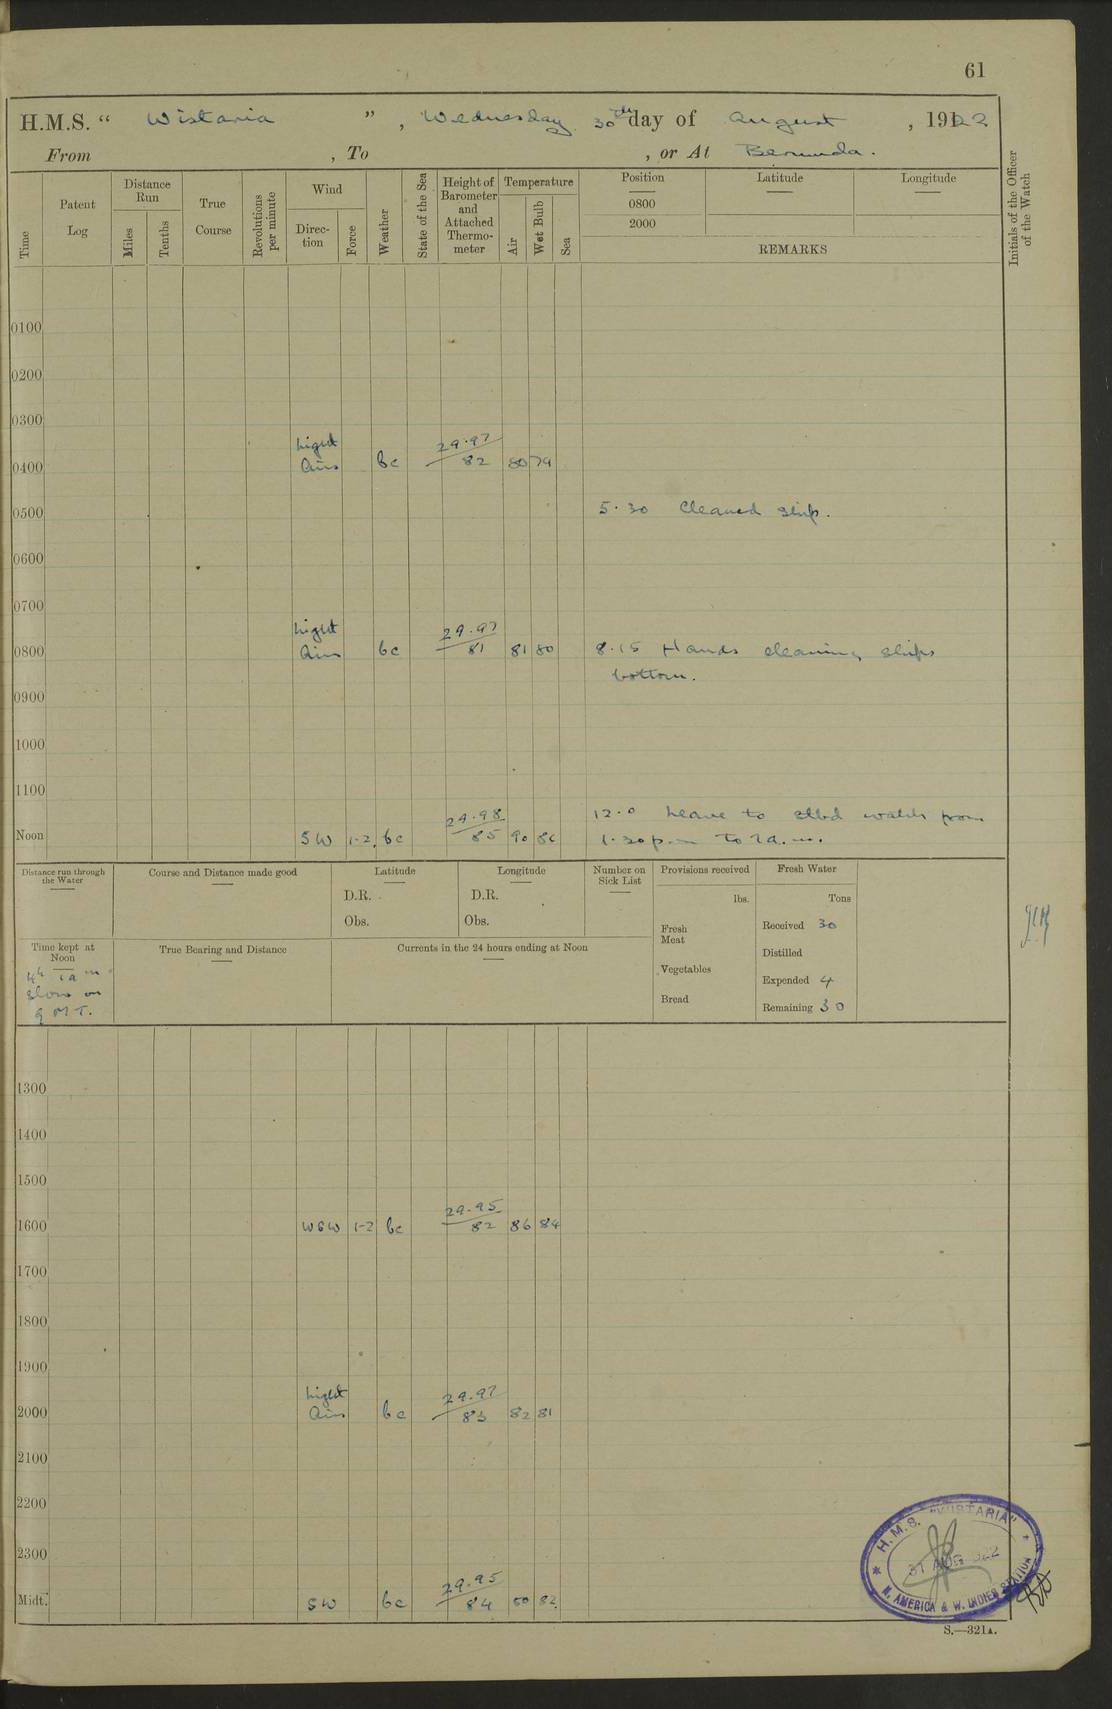 61
H.M.S. “ Wistaria ” , Wednesday 30th day of August , 1922
From , To , or At Bermuda.
Time
Patent Log
Distance Run
Miles
Tenths
True Course
Revolutions per minute
Wind
Direc-tion
Force
Weather
State of the Sea
Height of Barometer and Attached Thermo-meter
Temperature
Air
Wet Bulb
Sea
Position
0800
2000
Latitude
Longitude
REMARKS
Initials of the Officer of the Watch
0100
0200
0300
Light 29.97
0400 Airs bc 82 80 79
0500 5.30 Cleaned ship.
0600
0700
Light 29.97
0800 Airs bc 81 81 80 8.15 Hands cleaning ships
bottom.
0900
1000
1100
29.98 12.0 Leave to stbd watch from
Noon SW 1-2 bc 85 90 86 1.30 p.m to 7 a.m.
Distance run through the Water
Course and Distance made good
Latitude
D.R.
Obs.
Longitude
D.R.
Obs.
Number on Sick List
Provisions received
lbs.
Fresh Meat
Vegetables
Bread
Fresh Water
Tons
Received 30
Distilled
Expended 4
Remaining 30
Time kept at Noon
slow on
G M T.
True Bearing and Distance
Currents in the 24 hours ending at Noon
1300
1400
1500
29.95
1600 WSW 1-2 bc 82 86 84
1700
1800
1900
Light 29.97
2000 Airs bc 83 82 81
2100
2200
2300
29.95
Midt. SW bc 84 80 82
H.M.S. "WISTARIA"
31 AUG 1922
N. AMERICA & W. INDIES STATION
S.—321A.